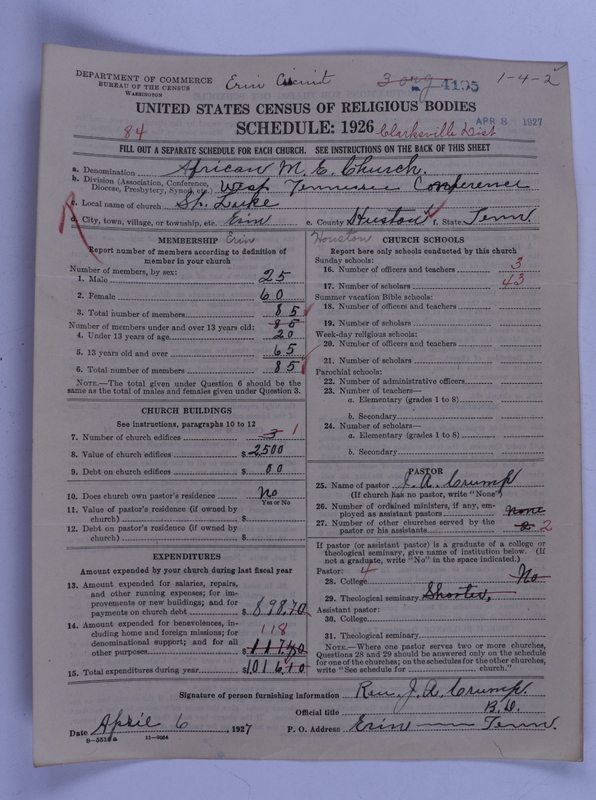 DEPARTMENT OF COMMERCE
BUREAU OF THE CENSUS
WASHINGTON
Erin Circuit
3 org 4195
1-4-2
UNITED STATES CENSUS OF RELIGIOUS BODIES
APR 8 1927
84 SCHEDULE: 1926 Clarksville Dist
FILL OUT A SEPARATE SCHEDULE FOR EACH CHURCH. SEE INSTRUCTIONS ON THE BACK OF THIS SHEET
a. Denomination African M. E. Church.
b. Division (Association, Conference, Diocese, Presbytery, Synod, etc.) West Tennessee Conference
c. Local name of church St. Luke
d. City, town, village, or township, etc. Erin e. County Huston f. State Tenn
MEMBERSHIP Erin
Report number of members according to definition of member in your church
Number of members, by sex:
1. Male 25
2. Female 60
3. Total number of members 85
Number of members under and over 13 years old: 85
4. Under 13 years of age 20
5. 13 years old and over 65
6. Total number of members 85
NOTE.—The total given under Question 6 should be the same as the total of males and females given under Question 3.
CHURCH BUILDINGS
See instructions, paragraphs 10 to 12
7. Number of church edifices 3 1
8. Value of church edifices $ 2500
9. Debt on church edifices $ 00
10. Does church own pastor's residence No
Yes or No
11. Value of pastor's residence (if owned by church) $
12. Debt on pastor's residence (if owned by church) $
EXPENDITURES
Amount expended by your church during last fiscal year
13. Amount expended for salaries, repairs, and other running expenses; for improvements or new buildings; and for payments on church debt $ 898.70
14. Amount expended for benevolences, including home and foreign missions; for denominational support; and for all other purposes 118 $ 117.40
15. Total expenditures during year $ 1016.10
Houston CHURCH SCHOOLS
Report here only schools conducted by this church
Sunday schools:
16. Number of officers and teachers 3
17. Number of scholars 43
Summer vacation Bible schools:
18. Number of officers and teachers
19. Number of scholars
Week-day religious schools:
20. Number of officers and teachers
21. Number of scholars
Parochial schools:
22. Number of administrative officers
23. Number of teachers—
a. Elementary (grades 1 to 8)
b. Secondary
24. Number of scholars—
a. Elementary (grades 1 to 8)
b. Secondary
PASTOR
25. Name of pastor J. A. Crump
(If church has no pastor, write "None")
26. Number of ordained ministers, if any, employed as assistant pastors None
27. Number of other churches served by the pastor or his assistants 2 2
If pastor (or assistant pastor) is a graduate of a college or theological seminary, give name of institution below. (If not a graduate, write "No" in the space indicated.)
Pastor: 4
28. College No
29. Theological seminary Shorter,
Assistant pastor:
30. College
31. Theological seminary
NOTE.—Where one pastor serves two or more churches, Questions 28 and 29 should be answered only on the schedule for one of the churches; on the schedules for the other churches, write "See schedule for church."
Signature of person furnishing information Rev. J. A. Crump.
Official title B. D.
Date April 6, 1927 P. O. Address Erin Tenn.
8-3518a 11-9084